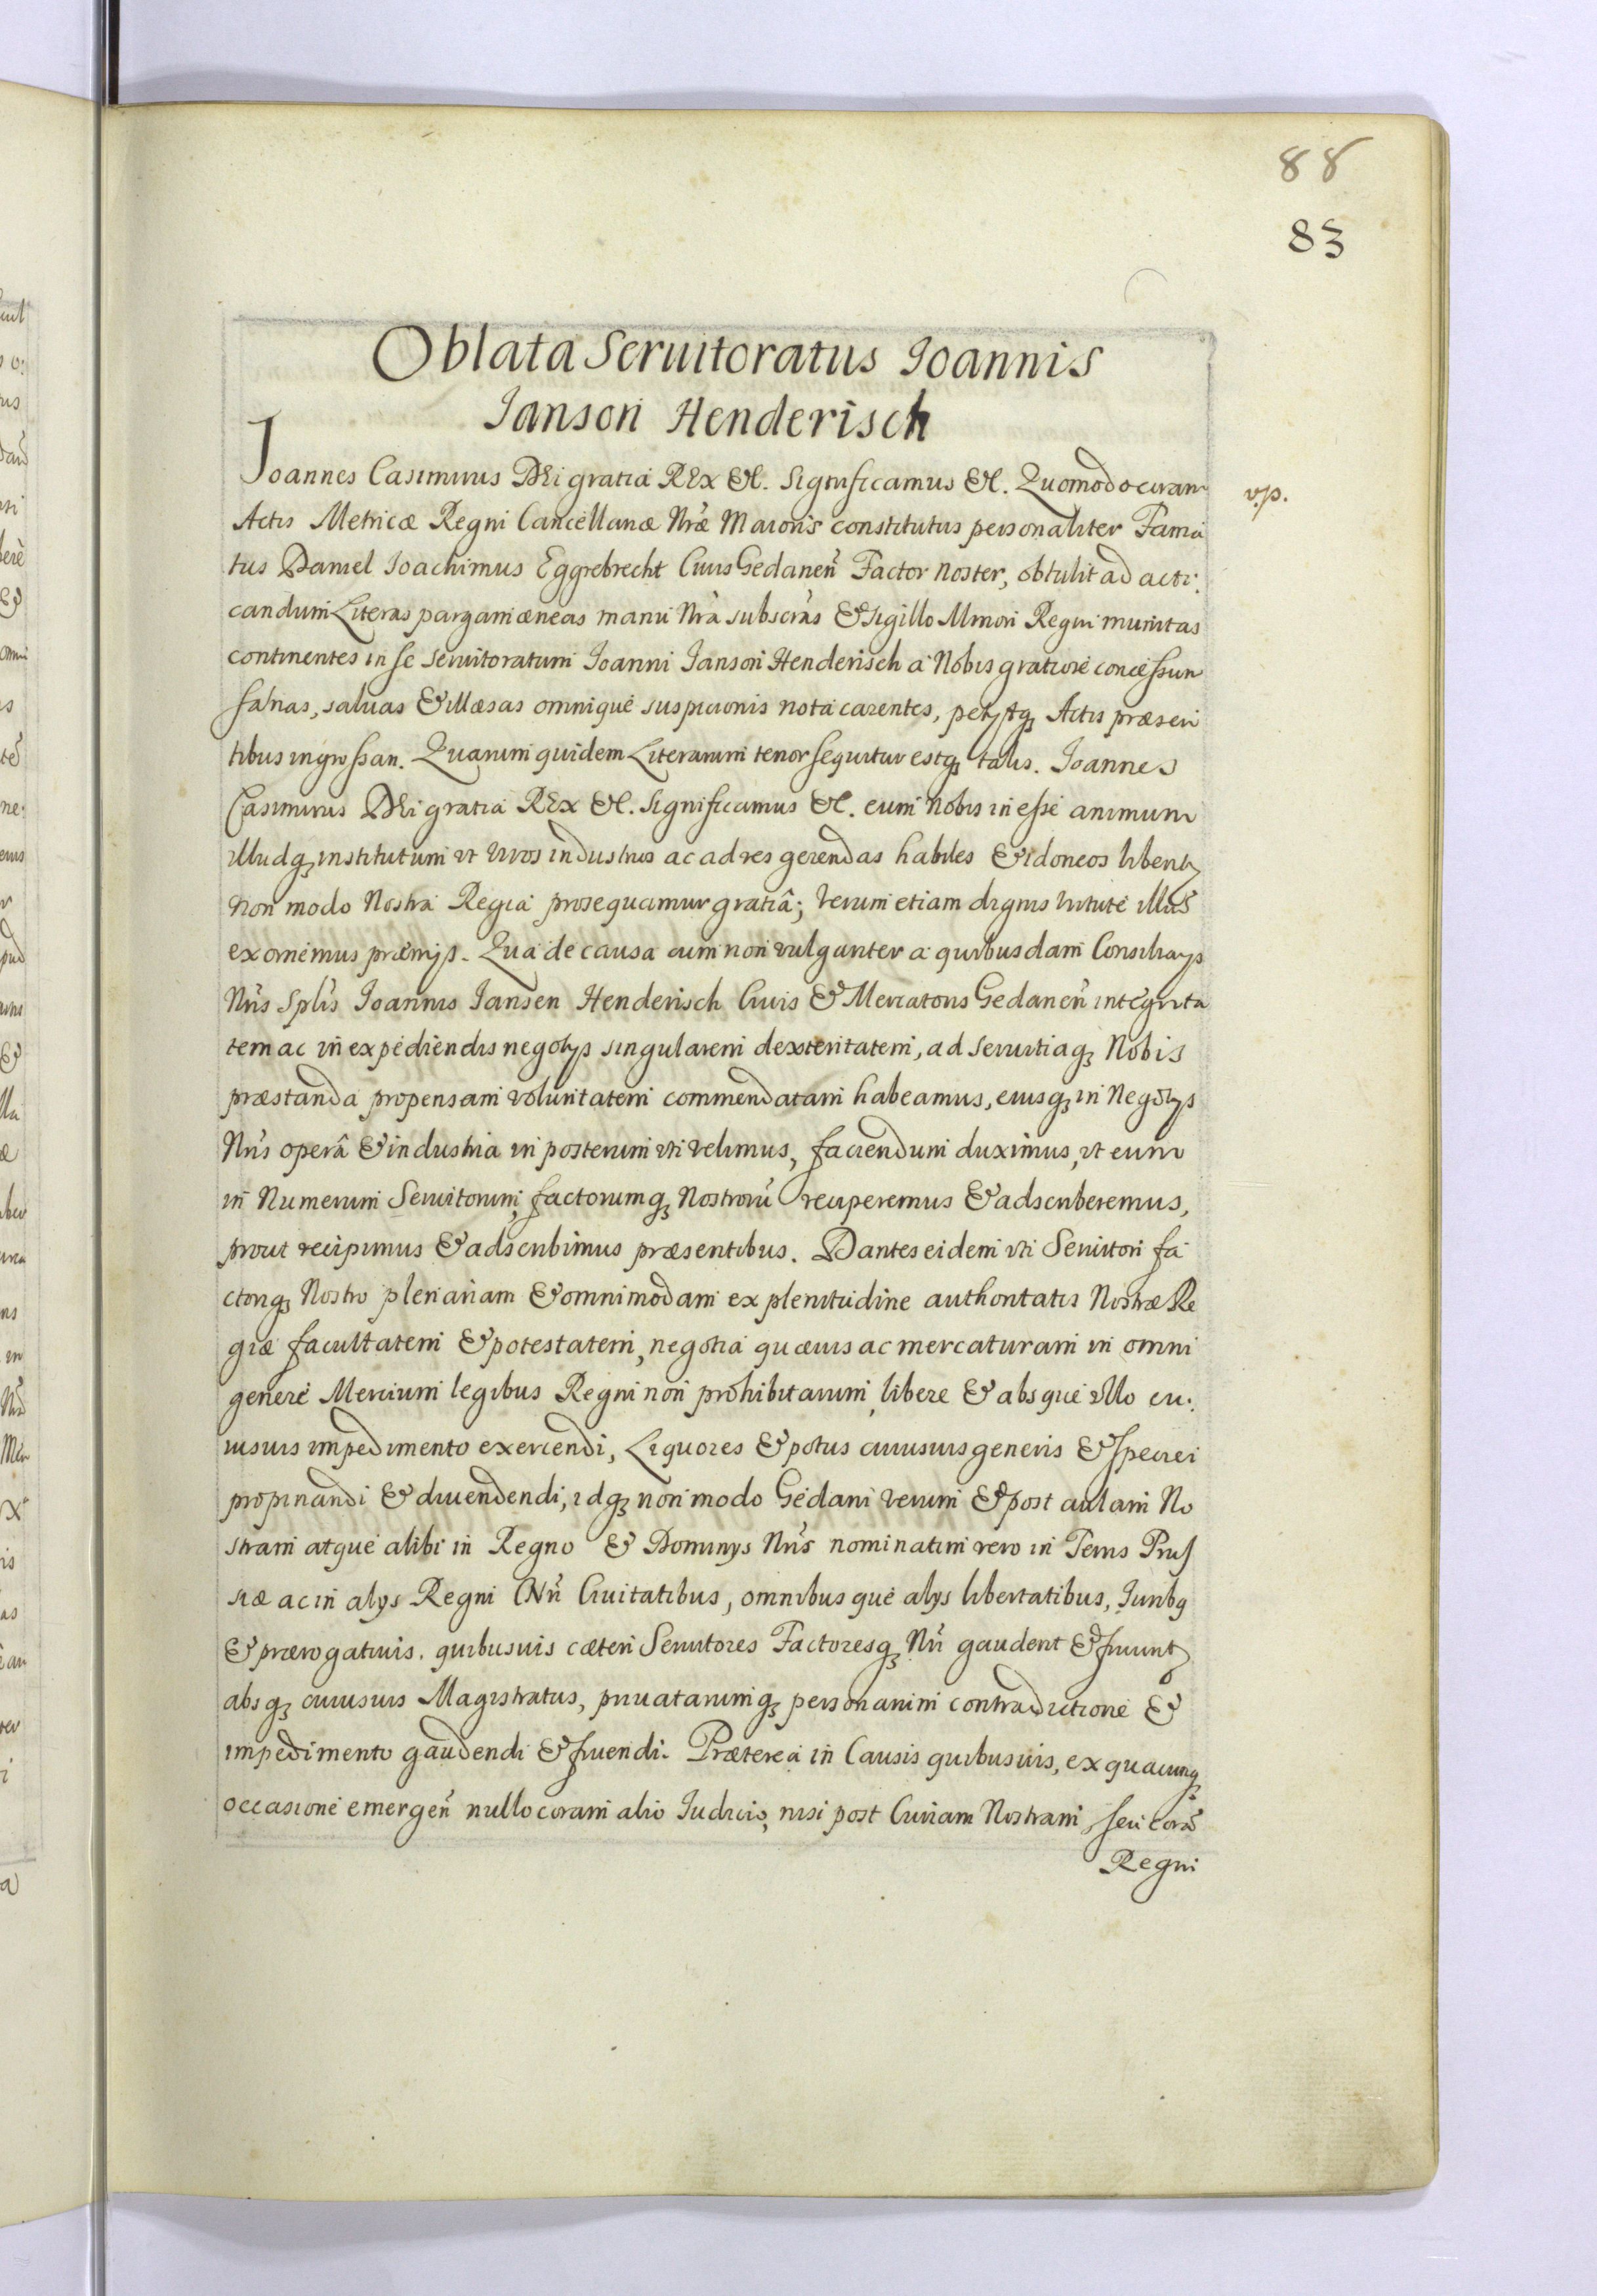 88
83
Oblata Seruitoratus Ioannis
Ianson Henderisch
Ioannes Casimirus DEi gratia REx &c. Significamus &c. Quomodo coram
v.p.
Actis Metricæ Regni Cancellariæ Nræ Maioris constitutus personaliter Fama
tus Daniel Ioachimus Eggrebrecht Ciuis Gedanen Factor Noster, obtulit ad acti:
candum Literas pargamæneas manu Nra subscras & Sigillo Minori Regni munitas
continentes in se Seruitoratum Ioanni Ianson Henderisch a Nobis gratiose concessum
sanas, saluas & illæsas omnique suspicionis nota carentes, petijtq Actis præsen
tibus ingrossari. Quarum quidem Literarum tenor sequitur estq talis. Ioannes
Casimirus DEi gratia REx &c. Significamus &c. eum Nobis inesse animum
illudq institutum vt Viros industrios ac ad res gerendas habiles & idoneos libent
non modo Nostra Regia prosequamur gratiâ; Verum etiam dignis Virtute illas
exornemus præmijs. Qua de causa cum non vulgariter a quibusdam Consiliarys
Nris Splis Ioannis Iansen Henderisch Ciuis & Mercatoris Gedanen integrita
tem ac in expediendis negotys singularem dexteritatem, ad seruitiaq Nobis
præstanda propensam voluntatem commendatam habeamus, eiusq in Negotys
Nris operâ & industria in posterum vti velimus, faciendum duximus, vt eum
in Numerum Seruitorum, factorumq Nostrorū reciperemus & adscriberemus,
prout recipimus & adscribimus præsentibus. Dantes eidem vti Seruitori fa
ctoriq Nostro plenariam & omnimodam ex plenitudine authoritatis Nostræ Re
giæ facultatem & potestatem, negotia quæuis ac mercaturam in omni
genere Mercium legibus Regni non prohibitarum, libere & absque vllo cu:
iusuis impedimento exercendi, Liquores & potus cuiusuis generis & speciei
propinandi & diuendendi, idq non modo Gedani verum & post aulam No
stram atque alibi in Regno & Dominys Nris nominatim vero in Terris Prus
siæ ac in alys Regni Nri Ciuitatibus, omnibusque alys libertatibus, Iuribq
& prærogatiuis. quibusuis cæteri Seruitores Factoresq Nri gaudent & fruunt
absq cuiusuis Magistratus, priuatarumq personarum contradictione &
impedimento gaudendi & fruendi. Præterea in Causis quibusuis, ex quacunq
occasione emergen nullo coram alio Iudicio, nisi post Curiam Nostram, seu corā
Regni